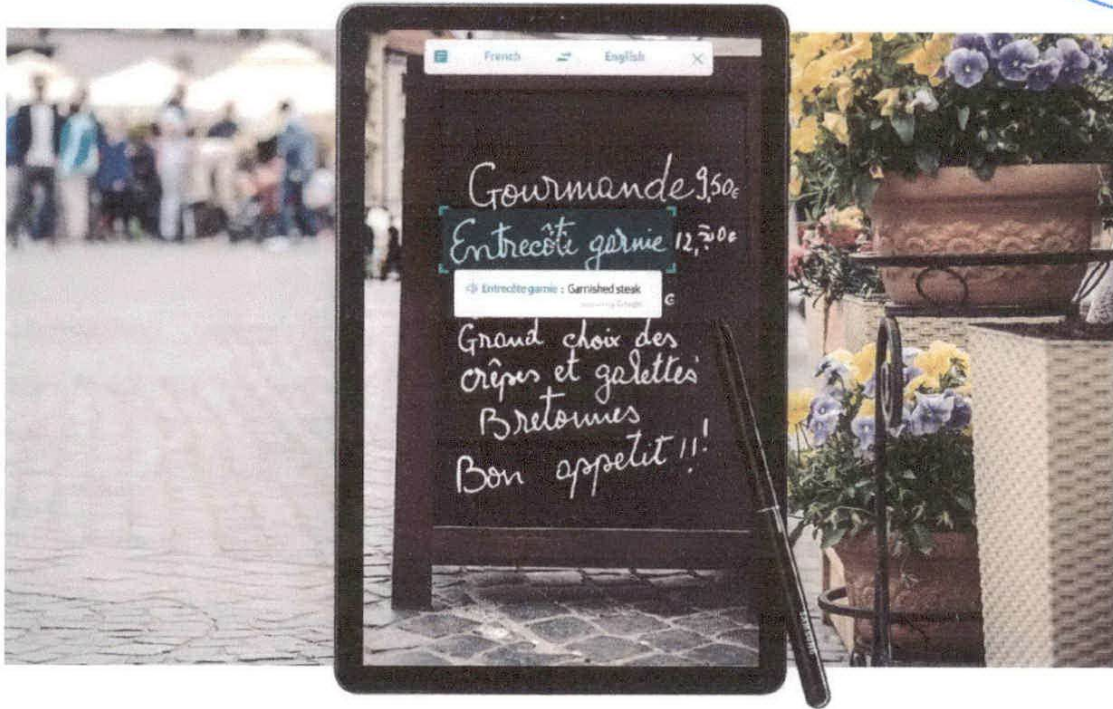 French English
Gourmande 9,50€
Entrecôte garnie
Entrecôte garnie : Garnished steak
Google
€
Grand choix des
crêpes et galettes
Bretonnes
Bon appetit !!!
SAMSUNG